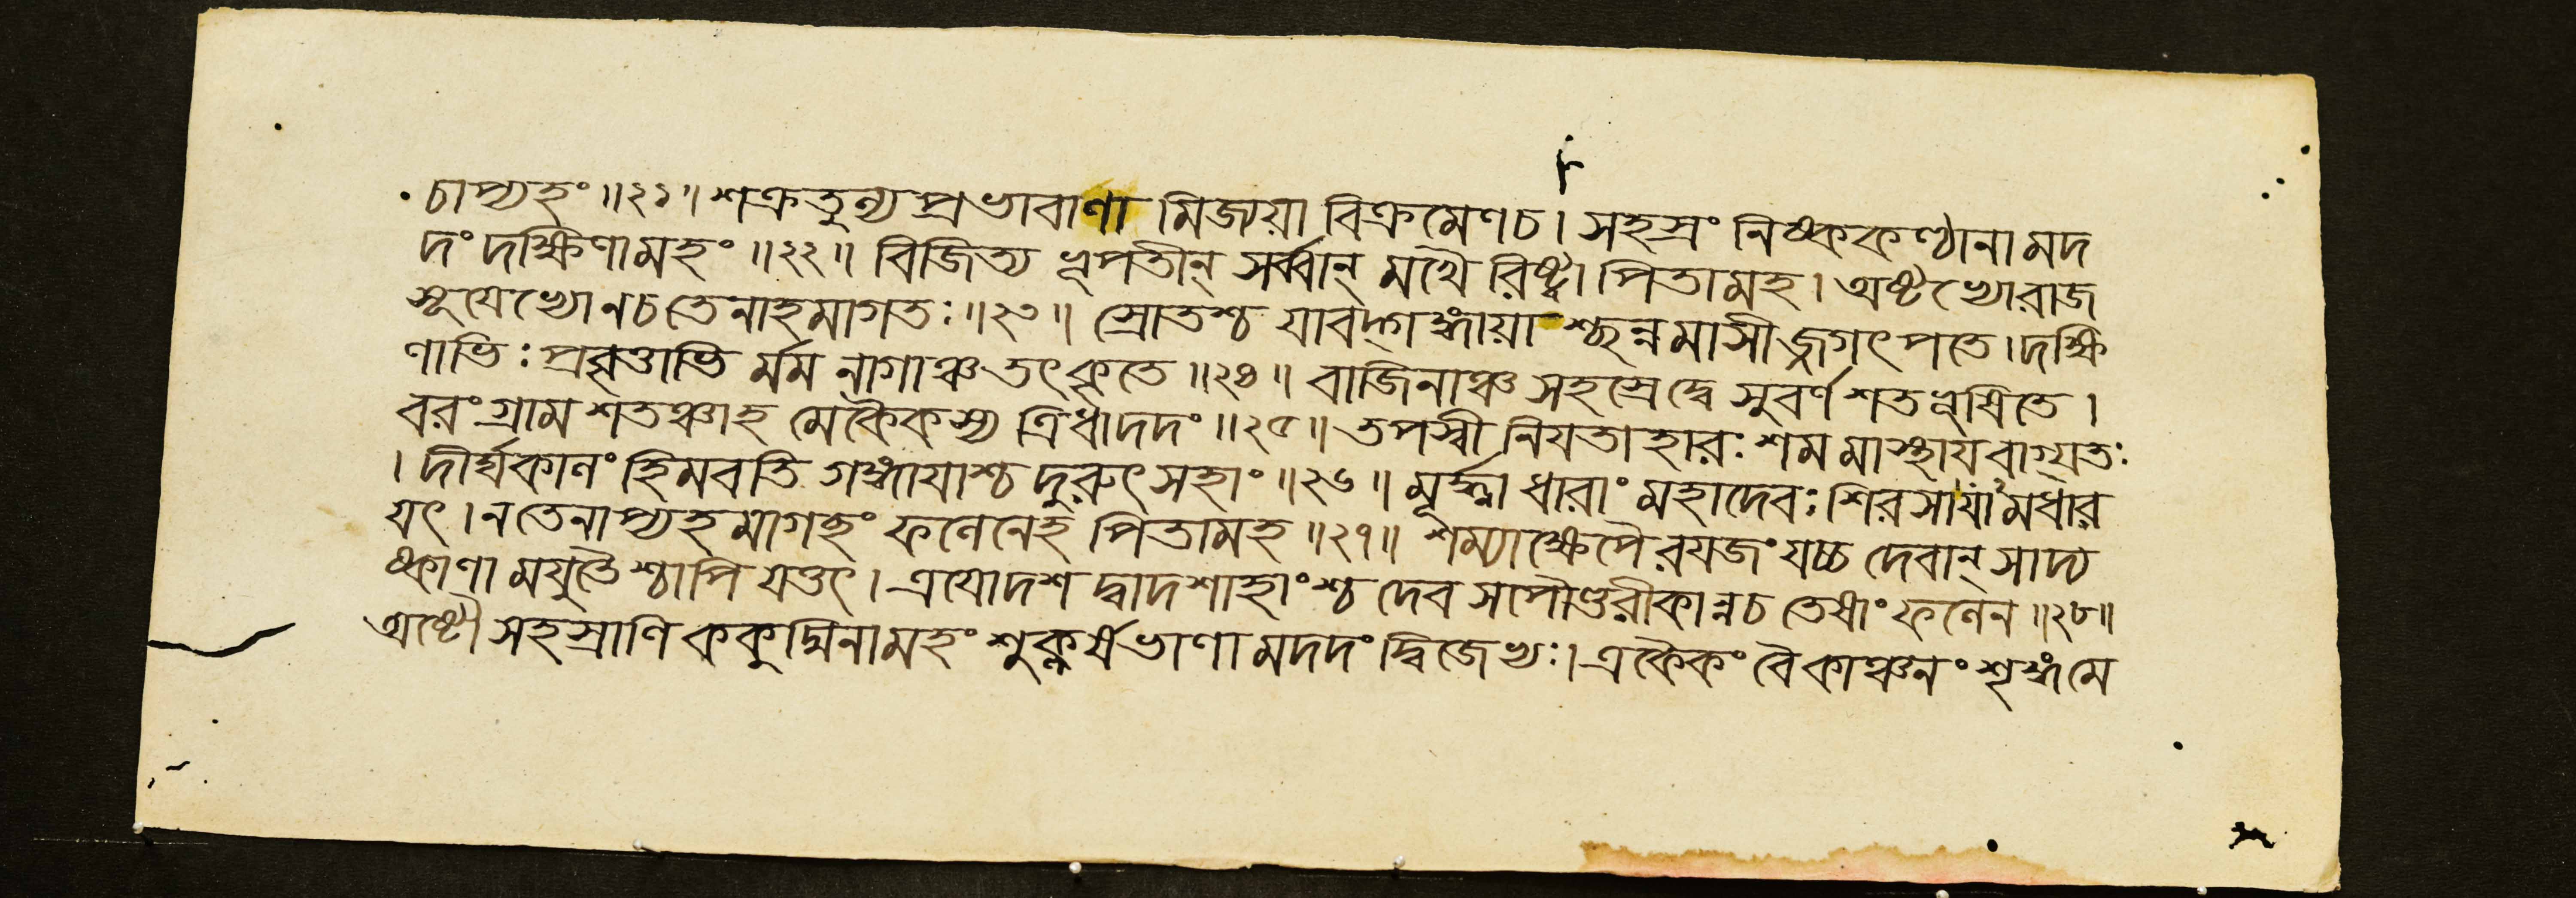 চাপ্যহং ॥২১॥ শক্রতুল্য প্রভাবাণা মিজ্যয়া বিক্রমেণচ। সহস্রং নিষ্ককণ্ঠানা মদ
দং দক্ষিণামহং ॥২২॥ বিজিত্য নৃপতীন্ সর্ব্বান্ মখৈ রিষ্ট্বা পিতামহ। অষ্টভ্যোরাজ
সূয়েভ্যোনচতেনাহমাগতঃ ॥২৩॥ স্রোতশ্চ যাবদ্গঙ্গায়া শ্ছন্নমাসীজ্জগৎপতে। দক্ষি
ণাভিঃ প্রবৃত্তাভি র্মম নাগাঞ্চতৎকৃতে ॥২৪॥ বাজিনাঞ্চ সহস্রেদ্বে সুবর্ণশতভূষিতে।
বরংগ্রামশতঞ্চাহ মেকৈকস্য ত্রিধাদদং ॥২৫॥ তপস্বী নিয়তাহারঃ শমমাস্থায়বাগ্যতঃ
। দীর্ঘকালং হিমবতি গঙ্গায়াশ্চ দুরুৎসহাং ॥২৬॥ মূর্দ্ধ্না ধারাং মহাদেবঃ শিরসাযামধার
যৎ। নতেনাপ্যহমাগচ্ছং ফলেনেহ পিতামহ ॥২৭॥ শম্যাক্ষেপৈ রযজংযচ্চ দেবান্ সাদ্য
স্কাণা মযুতৈ শ্চাপি যত্তৎ। ত্রয়োদশ দ্বাদশাহাংশ্চ দেব সপৌণ্ডরীকান্নচ তেষাং ফলেন ॥২৮॥
অষ্টৌ সহস্রাণি ককুদ্মিনামহং শুক্লর্ষভাণা মদদং দ্বিজেভ্যঃ। একৈকং বৈকাঞ্চনং শৃঙ্গমে